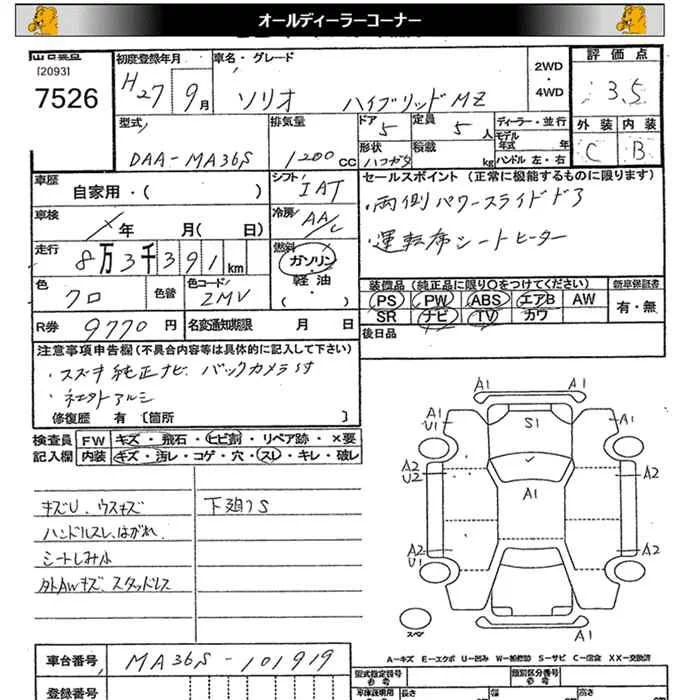 オールディーラーコーナー
[2093]
7526
初度登録年月
H27 9月
車名・グレード
ソリオ ハイブリッドMZ
2WD
・
4WD
評価点
3.5
外装 内装
C B
型式
DAA-MA36S
排気量
1200cc
ドア
5
定員
5人
形状
ハコガタ
積載
kg
ディーラー・並行
モデル年式 年
ハンドル 左・右
車歴
自家用・( )
シフト
IAT
車検
年 月( 日)
冷房
AA/C
走行
8万3千391km
燃料
ガソリン・
軽油・
( )
色
クロ
色替
色コード
ZMV
R券 9770円
名変通知期限 月 日
セールスポイント(正常に機能するものに限ります)
・両側パワースライドドア
・運転席シートヒーター
装備品(純正品に限り○をつけてください)
PS PW ABS エアB AW
SR ナビ TV カワ
新車保証書
有・無
後日品
注意事項申告欄(不具合内容等は具体的に記入して下さい)
・スズキ純正ナビ、バックカメラ付
・社外アルミ
修復歴 有 〔箇所 〕
検査員
記入欄
FW キズ・飛石・ヒビ割・リペア跡・×要
内装 キズ・汚レ・コゲ・穴・スレ・キレ・破レ
キズU、ウスキズ
下廻りS
ハンドルスレ、はがれ
シートしみ小
外AWキズ、スタッドレス
A1 A1
A1
U1
S1
A1
A2
U2
A1
A2
A2
U1
A2
スペア
A1
A-キズ E-エクボ U-凹み W-補修跡 S-サビ C-腐食 XX-交換済
車台番号 MA36S-101919
登録番号
型式指定番号
参考
類別区分番号
参考
長さ
幅
高さ